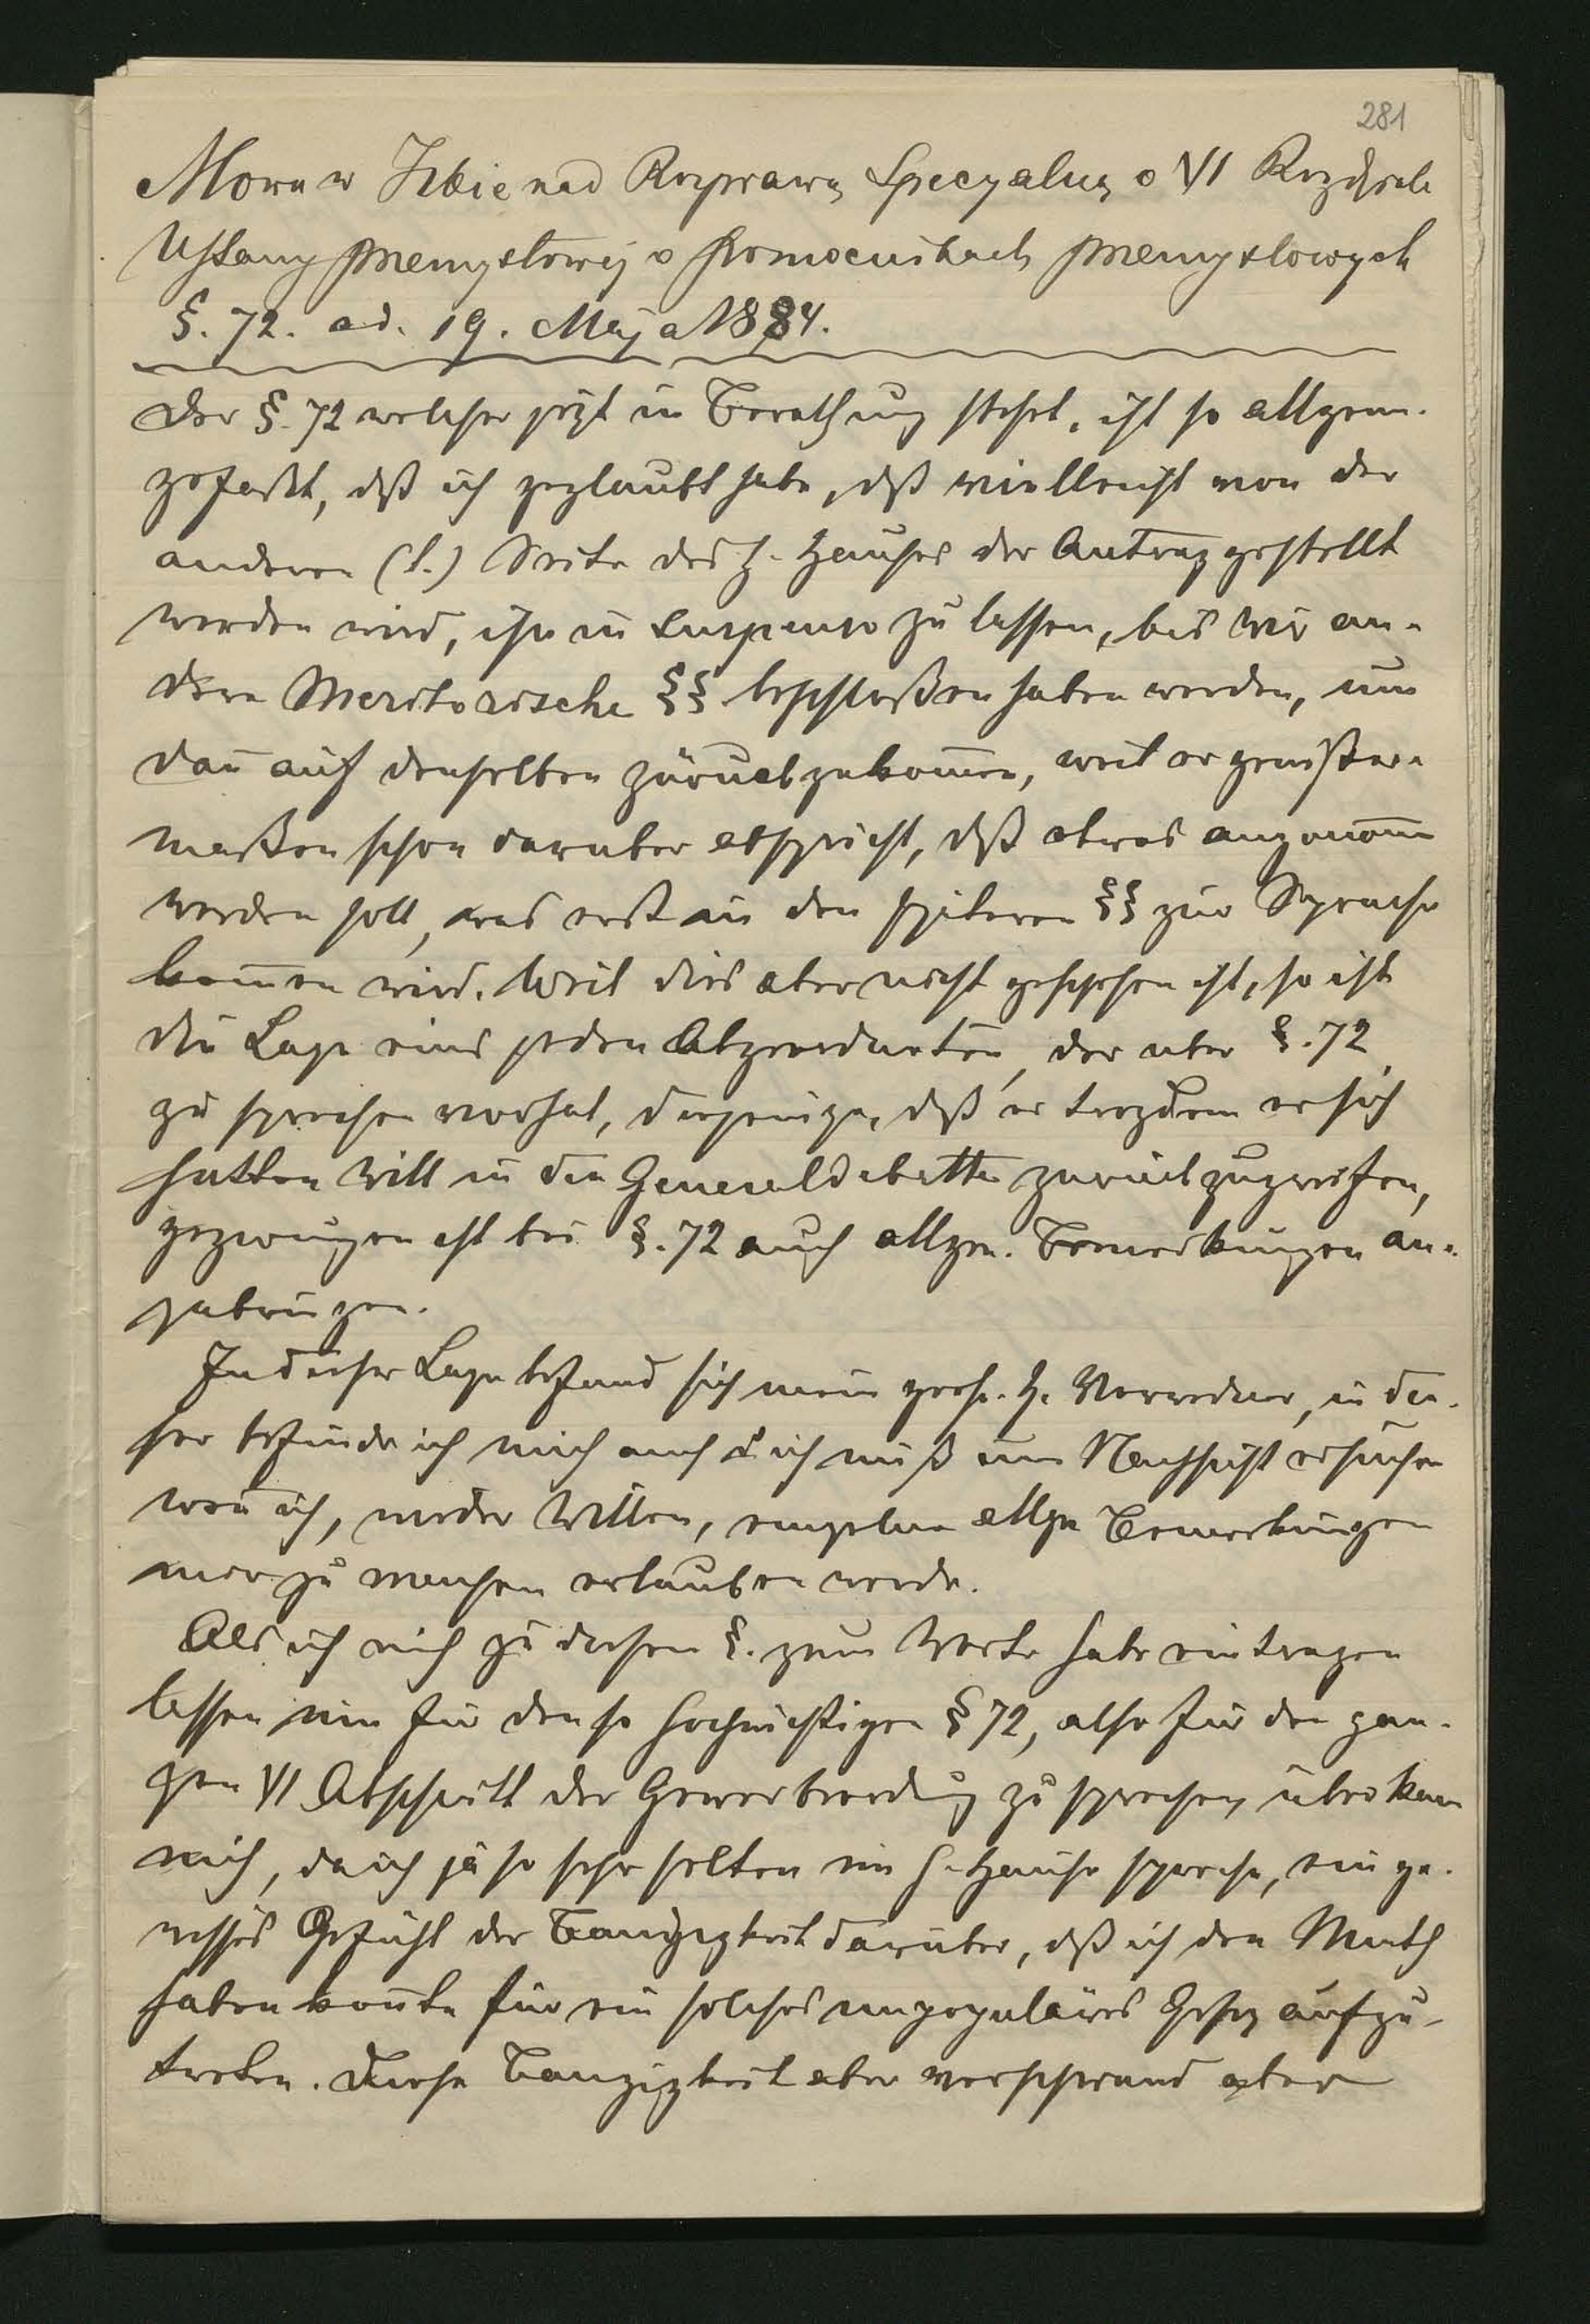 281
Mowa w Izbie nad Rozprawą Specyalną o VI Rozdziale
Ustawy przemysłowej o pomocnikach przemysłowych
§. 72. ad. 19. Maja 1884.
Der §. 72 welcher jezt in Berathung steht, ist so allgem.
gefaßt, dß ich geglaubt habe, dß vielleicht von der
anderen (l.) Seite des h. Hauses der Antrag gestellt
werden wird, ihn in suspenso zu lassen, bis wir an-
dere Meritorische §§ beschloßen haben werden, um
dañ auf denselben zurückzukom̄en, weil er gewißer-
maßen schon darüber abspricht, dß etwas angenom̄en
werden soll, was erst in den späteren §§ zur Sprache
kom̄en wird. Weil dies aber nicht geschehen ist, so ist
die Lage eines jeden Abgeordneten, der über §. 72
zu sprechen vorhat, diejenige, dß er trozdem er sich
hüthen will in die Generaldebatte zurückzugreifen,
gezwungen ist bei §. 72 auch allgem. Bemerkungen an-
zubringen.
In dieser Lage befand sich mein geehr. H. Vorredner, in die-
ser befinde ich mich auch & ich muß um Nachsicht ersuchen
weñ ich, wider Willen, einzelne allge Bemerkungen
mir zu machen erlauben werde.
Als ich mich zu diesem §. zum Worte habe eintragen
lassen um für den so hochwichtigen § 72, also für den gan-
zen VI Abschnitt der Gewerbeordng zu sprechen, überkam
mich, da ich ja so sehr selten im h. Hause spreche, ein ge-
wisses Gefühl der Bangigkeit darüber, dß ich den Muth
haben koñte für ein solches unpopuläres Gesez aufzu-
treten. Diese Bangigkeit aber verschwand aber